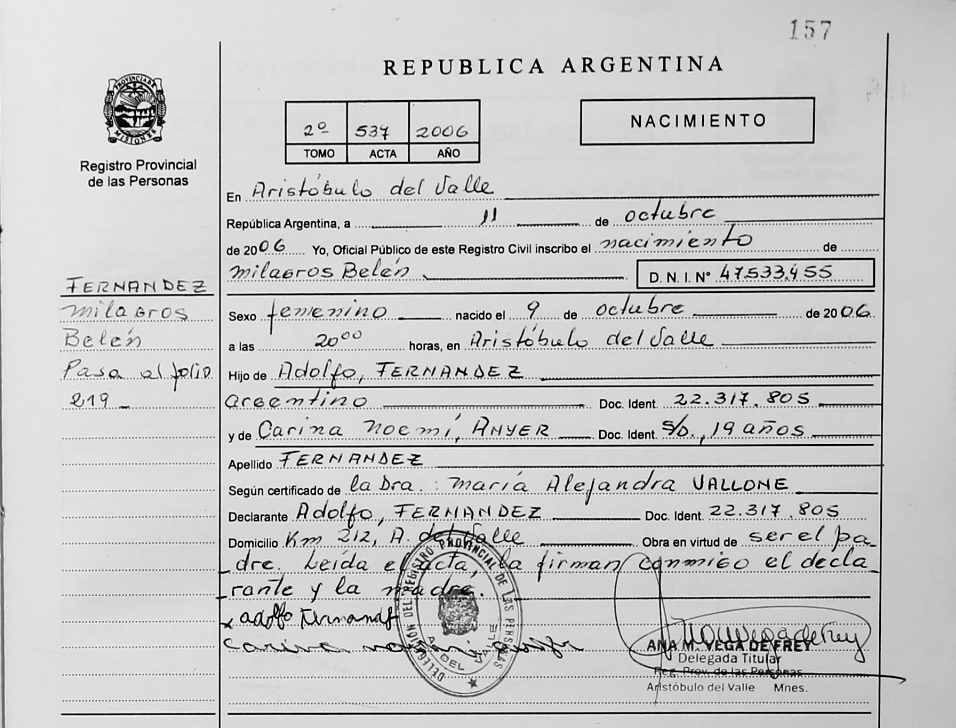 157
REPUBLICA ARGENTINA
PROVINCIA DE MISIONES
Registro Provincial
de las Personas
2º 537 2006
TOMO ACTA AÑO
NACIMIENTO
En Aristóbulo del Valle
República Argentina, a 11 de octubre
de 2006 Yo, Oficial Público de este Registro Civil inscribo el nacimiento de
Milagros Belén D.N.I. Nº 47.533.455
FERNANDEZ
Milagros
Belén
Pasa al folio
219_
Sexo femenino nacido el 9 de octubre de 2006
a las 20⁰⁰ horas, en Aristóbulo del Valle
Hijo de Adolfo, FERNANDEZ
argentino Doc. Ident. 22.317.805
y de Carina Noemí, ANYER Doc. Ident. S/D., 19 años
Apellido FERNANDEZ
Según certificado de la Dra. María Alejandra VALLONE
Declarante Adolfo, FERNANDEZ Doc. Ident. 22.317.805
Domicilio Km 212, A. del Valle Obra en virtud de ser el pa-
dre. Leída el acta, la firman conmigo el decla
rante y la madre.
adolfo Fernandez
Carina
DELEGACION DEL REGISTRO PROVINCIAL DE LAS PERSONAS
A. DEL VALLE
ANA M. VEGA DE FREY
Delegada Titular
Reg. Prov. de las Personas
Aristóbulo del Valle Mnes.